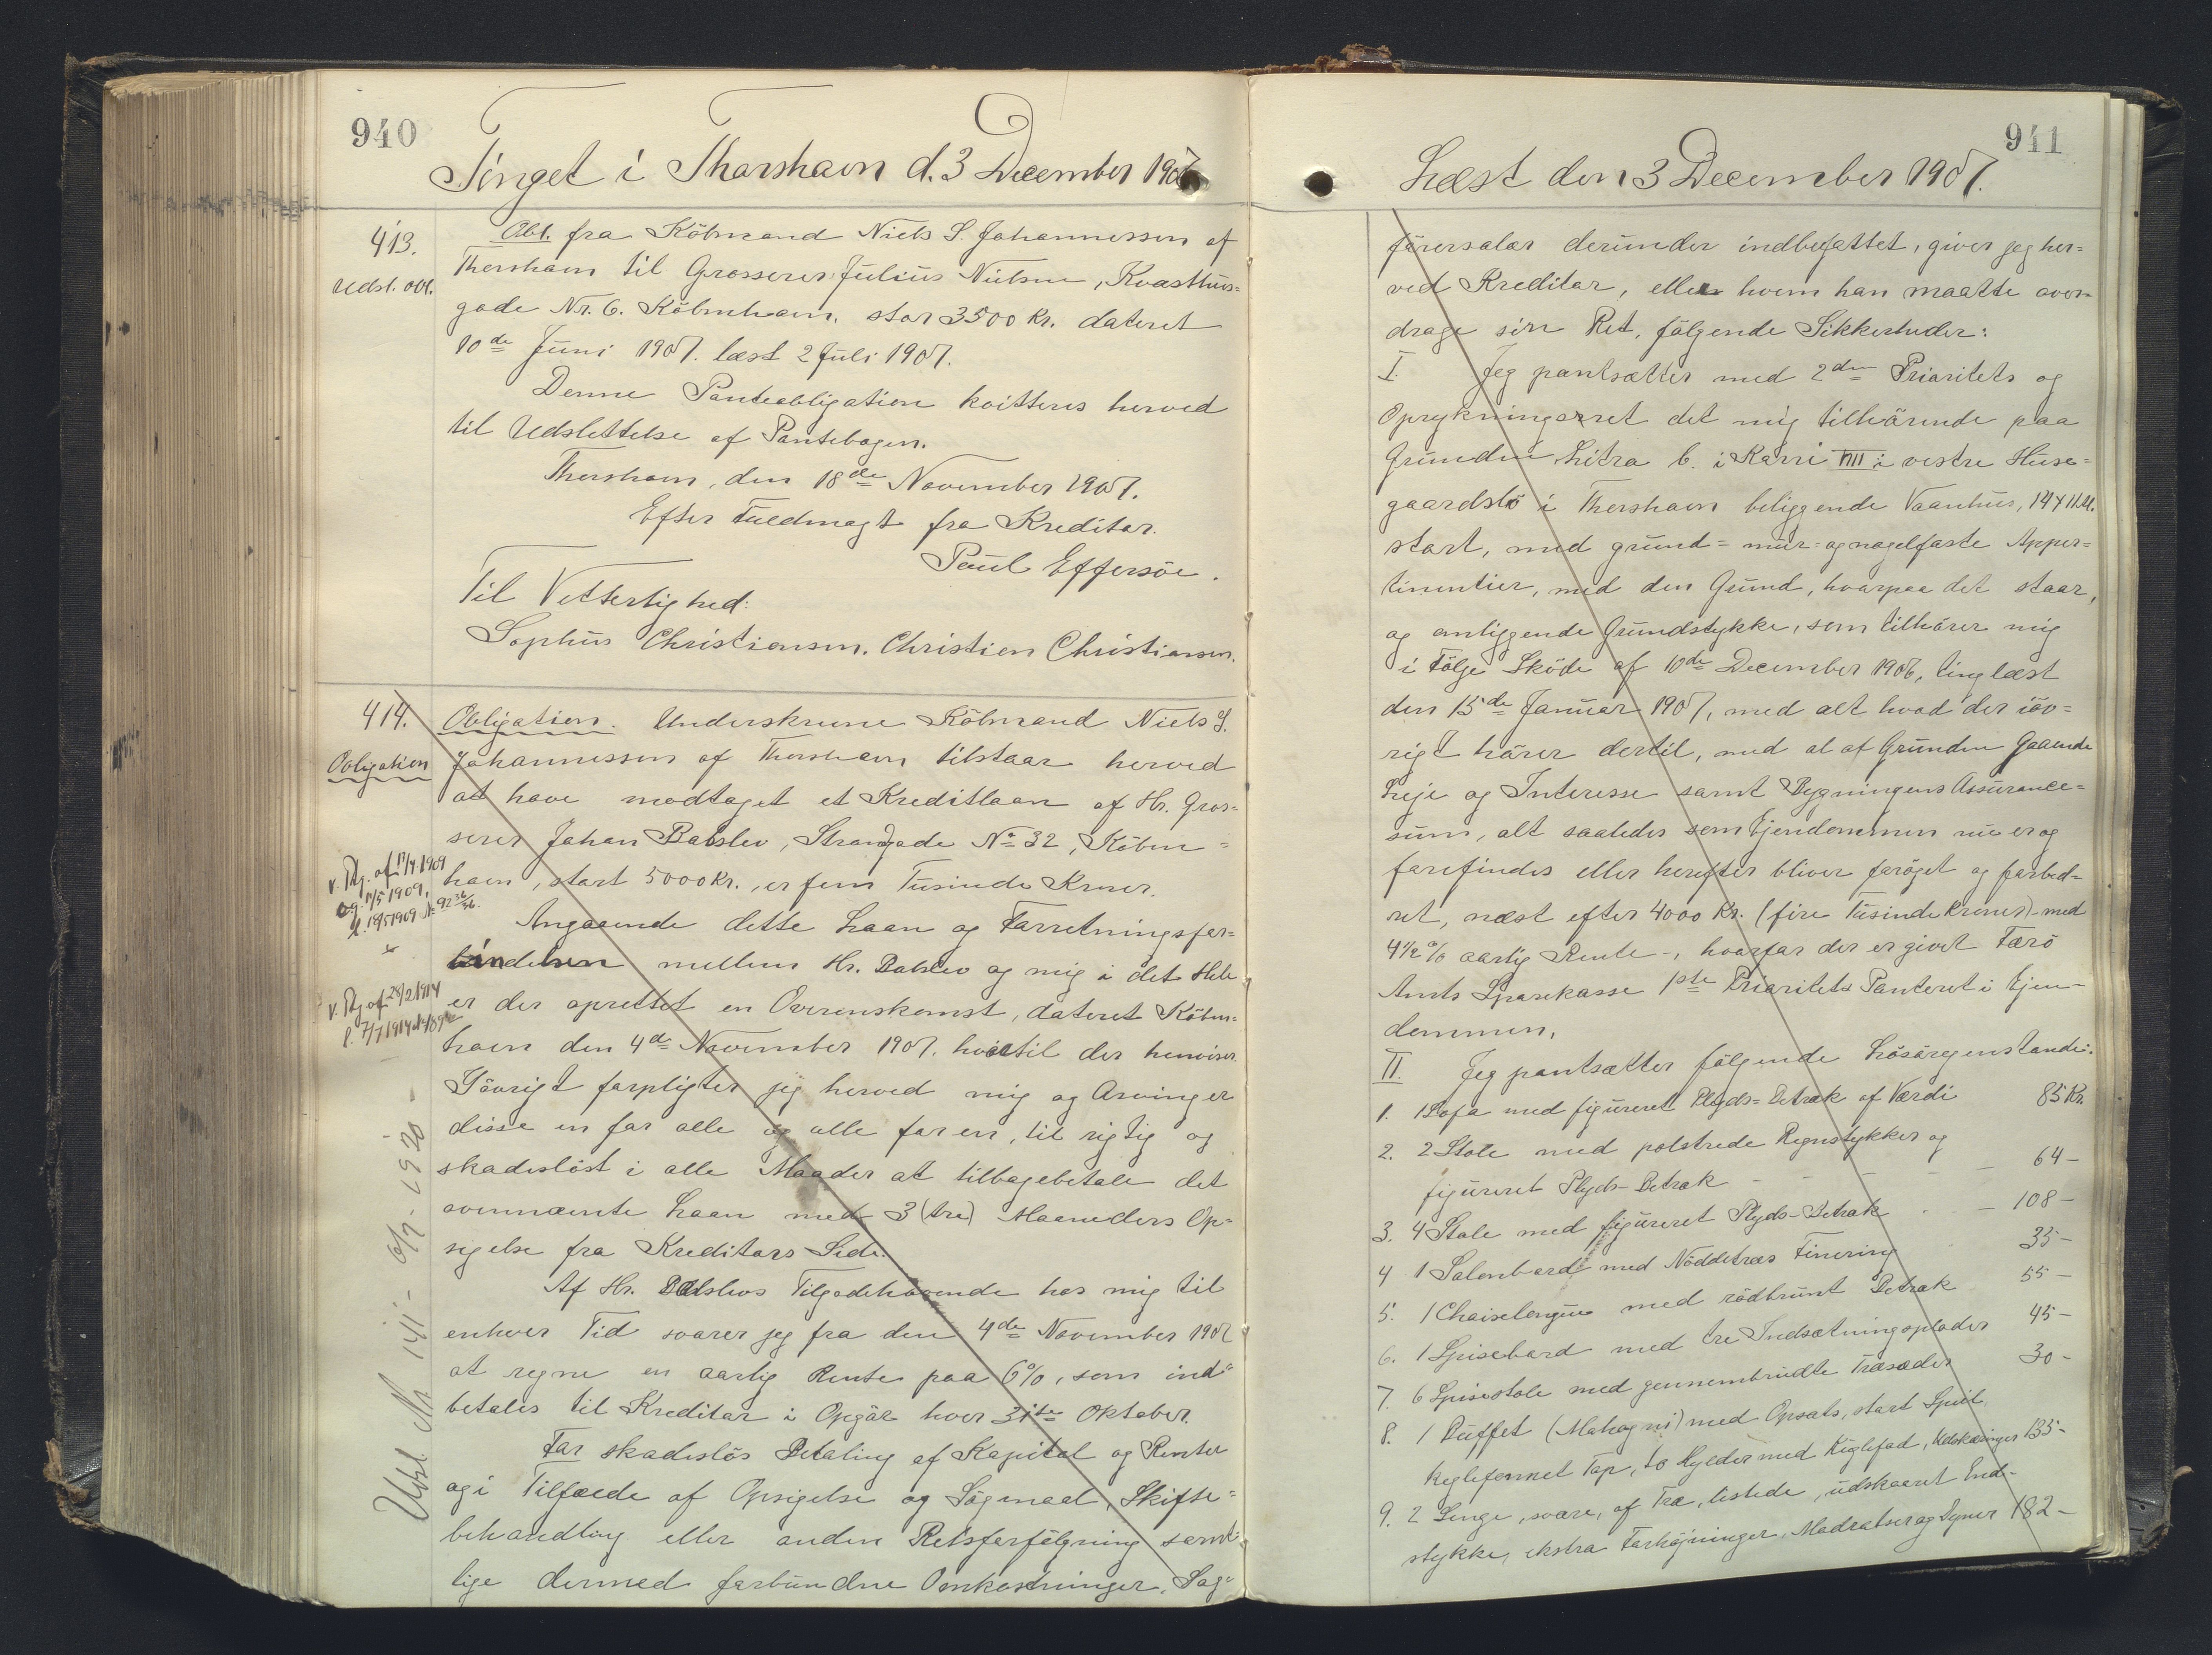 940
Tinget i Thorshavn d. 3 December 1907
413.
Udsl. Obl.
Obl. fra Köbmand Niels S. Johannessen af
Thorshavn til Grosserer Julius Nielsen, Kvæsthus=
gade Nr. 6. Köbenhavn. stor 3500 Kr. dateret
10de Juni 1907. læst 2 Juli 1907.
Denne Panteobligation kvitteres herved
til Udslettelse af Pantebogen.
Thorshavn, den 18de November 1907.
Efter Fuldmagt fra Kreditor.
Poul Effersöe.
Til Vitterlighed:
Sophus Christiansen. Christian Christiansen.
414.
Obligation
Obligation. Underskrevne Köbmand Niels S.
Johannessen af Thorshavn tilstaar herved
at have modtaget et Kreditlaan af Hr. Gros=
serer Johan Balslev, Strandgade No 32, Köben=
havn, stort 5000 Kr., er fem Tusinde Kroner.
v. Ptg. af 17/4 1909
og 11/5 1909,
l. 18/5 1909
Angaaende dette Laan og Forretningsfor=
bindelsen mellem Hr. Balslev og mig i det Hele
v. Ptg. af 28/2 1914
l. 7/7 1914
er der oprettet en Overenskomst, dateret Köben=
havn den 4de November 1907. hvortil der henvises.
Iövrigt forpligter jeg herved mig og Arvinger
disse en for alle og alle for en, til rigtig og
skadeslöst i alle Maader at tilbagebetale det
ovennævnte Laan med 3 (tre) Maaneders Op=
sigelse fra Kreditors Side.
Af Hr. Balslevs Tilgodehavende hos mig til
enhver Tid svarer jeg fra den 4de November 1907
at regne en aarlig Rente paa 6%, som ind=
betales til Kreditor i Opgör hver 31te Oktober.
For skadeslös Betaling af Kapital og Renter
og i Tilfælde af Opsigelse og Sögmaal, Skifte=
behandling eller anden Retsforfölgning samt
lige dermed forbundne Omkostninger, Sag=
941
Læst den 3 December 1907.
förersalær derunder indbefattet, giver jeg her=
ved Kreditor, eller hvem han maatte over=
drage sin Ret, fölgende Sikkerheder:
I. Jeg pantsætter med 2den Prioritets og
Oprykningsret det mig tilhörende paa
Grunden Litra b. i Karré VIII i vestre Huse=
gaardslö i Thorshavn beliggende Vaanhus, 14 x 11 Al.
stort, med grund= mur= og nagelfaste Apper=
tinentier, med den Grund, hvorpaa det staar,
og omliggende Grundstykke, som tilhörer mig
i Fölge Sköde af 10de December 1906, tinglæst
den 15de Januar 1907, med alt hvad der iöv=
rigt hörer dertil, med al af Grunden Gaaende
Leje og Interesse samt Bygningens Assurance=
sum, alt saaledes som Ejendommen nu er og
forefindes eller herefter bliver foröget og forbed=
ret, næst efter 4000 Kr. (fire Tusinde Kroner) - med
4 1/2 % aarlig Rente -, hvorfor der er givet Færö
Amts Sparekasse 1ste Prioritets Panteret i Ejen=
dommen.
II. Jeg pantsætter fölgende Lösöregenstande:
1. 1 Sofa med figureret Plyds=Betræk af Værdi 85 Kr.
2. 2 Stole med polstrede Rygstykker og
figureret Plyds-Betræk - - - - 64 -
3. 4 Stole med figureret Plyds-Betræk - - 108 -
4 1 Salonbord med Nöddetræs Finering 35 -
5. 1 Chaiselongue med rödbrunt Betræk 55 -
6. 1 Spisebord med tre Indsætningsplader 45 -
7. 6 Spisestole med gennembrudte Træsæder 30 -
8. 1 Buffet (Mahogni) med Opsats, stort Spejl,
kegleformet Top, to Hylder med Keglefod, Udskæringer 135 -
9. 2 Senge, svære, af Træ, listede, udskaaret Ende=
stykke, ekstra Forhöjninger, Madratser og Dyner 182 -